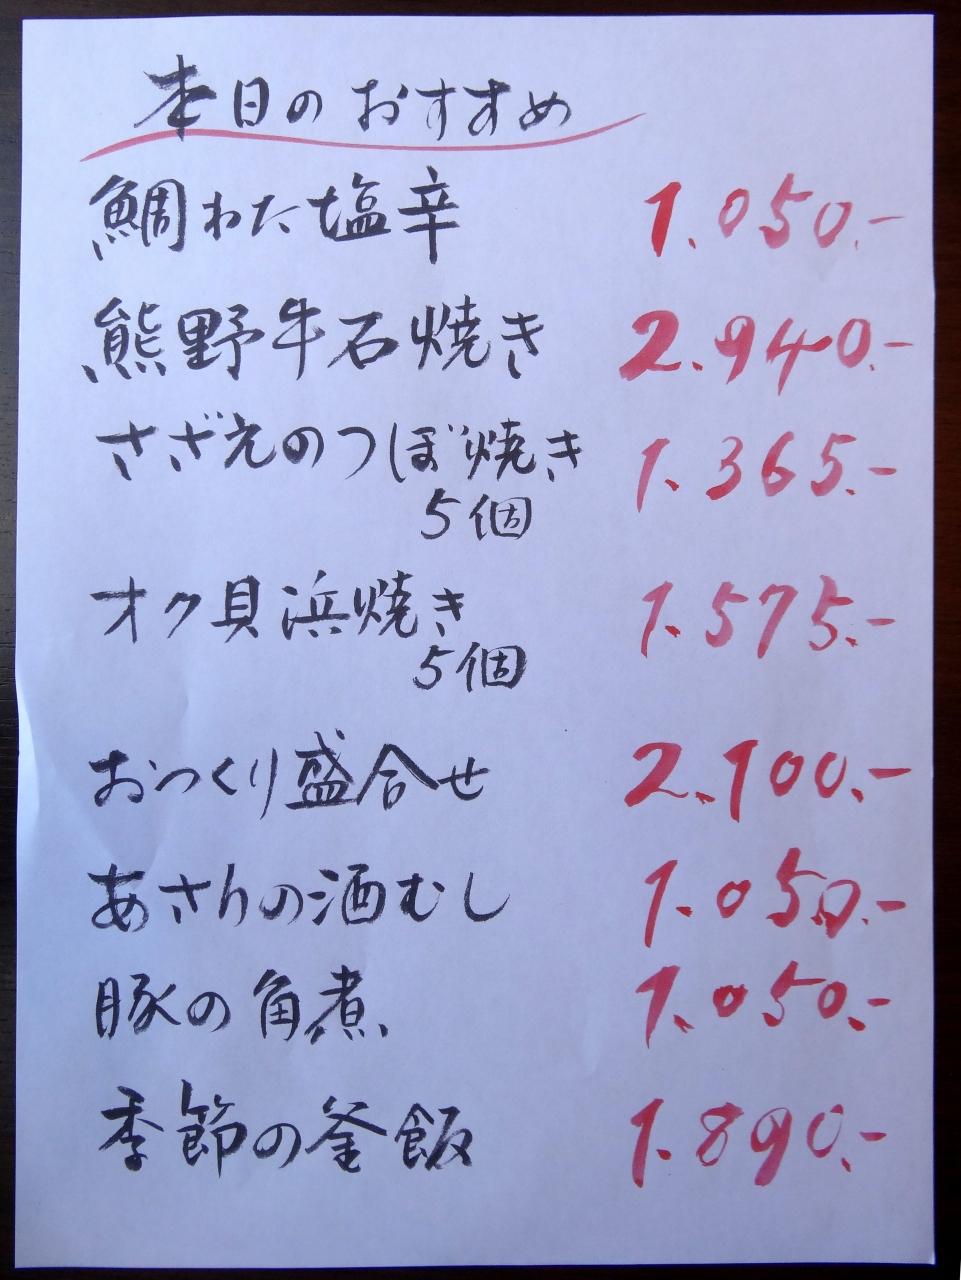 本日のおすすめ
鯛わた塩辛 1.050.-
熊野牛石焼き 2.940.-
さざえのつぼ焼き 1.365.-
5個
オク貝浜焼き 1.575.-
5個
おつくり盛合せ 2.100.-
あさりの酒むし 1.050.-
豚の角煮 1.050.-
季節の釜飯 1.890.-